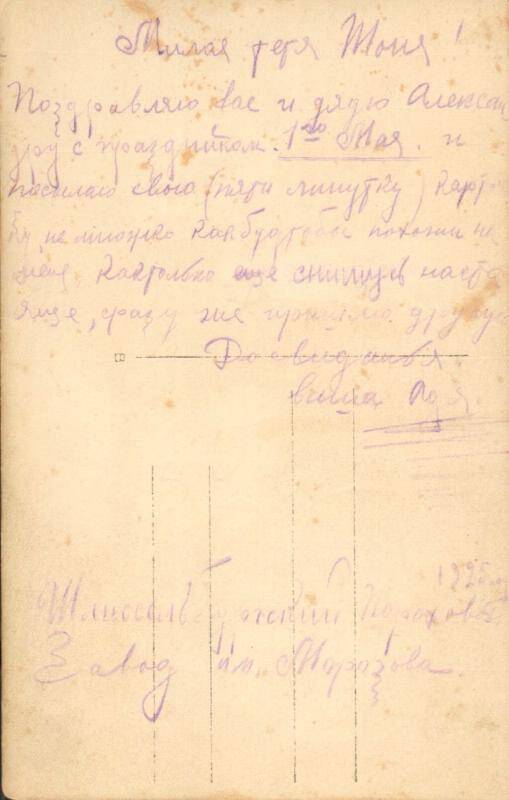 Милая тетя Тоня!
Поздравляю вас и дядю Алексан
дру с праздником. 1го Мая. и
посылаю свою (пяти минутку) карточ
ку, не множко какбудтобы похожи на
меня, кактолько еще снимусь наста
яще, сразу же пришлю другую
Досвиданья
ваша
Шлиссельбургский Пороховой
Завод им. Морозова.